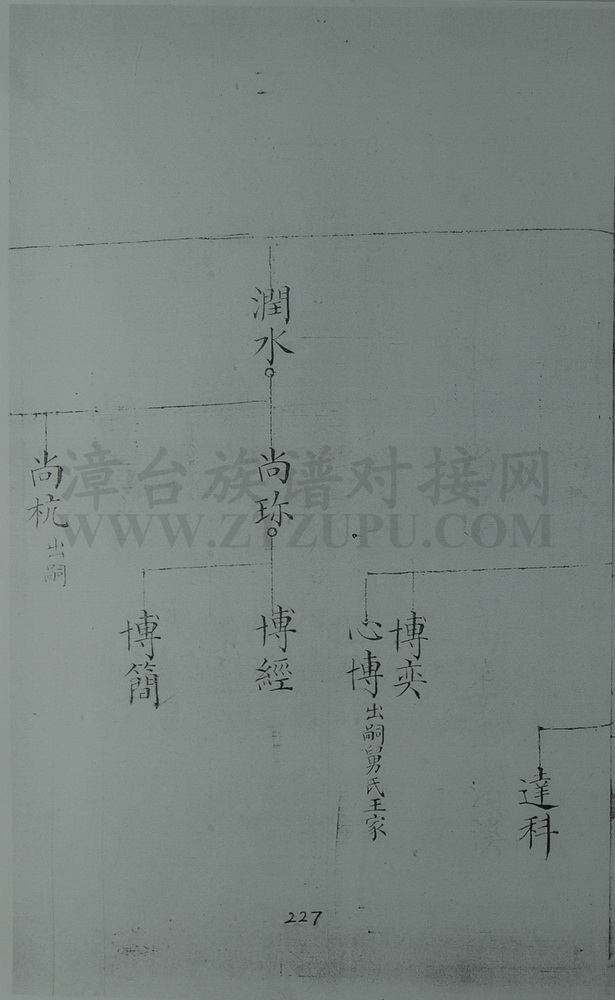 潤水
尚珎
尚杭
出嗣
博奕
心博
出嗣舅氏王家
博經
博簡
達科
漳台族谱对接网
WWW.ZTZUPU.COM
227